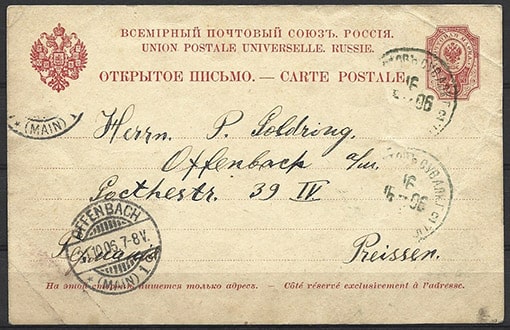 ВСЕМІРНЫЙ ПОЧТОВЫЙ СОЮЗЪ. РОССІЯ.
UNION POSTALE UNIVERSELLE. RUSSIE.
ОТКРЫТОЕ ПИСЬМО. — CARTE POSTALE.
СУВАЛКИ
16
06
* (MAIN) *
Herrn. P. Soldring.
Offenbach a/m.
Goethestr. 39 IV.
СУВАЛКИ
16
06
OFFENBACH
10.06. 7-8V.
* (MAIN) 1
Preissen.
На этой сторонѣ пишется только адресъ. — Côté réservé exclusivement à l'adresse.